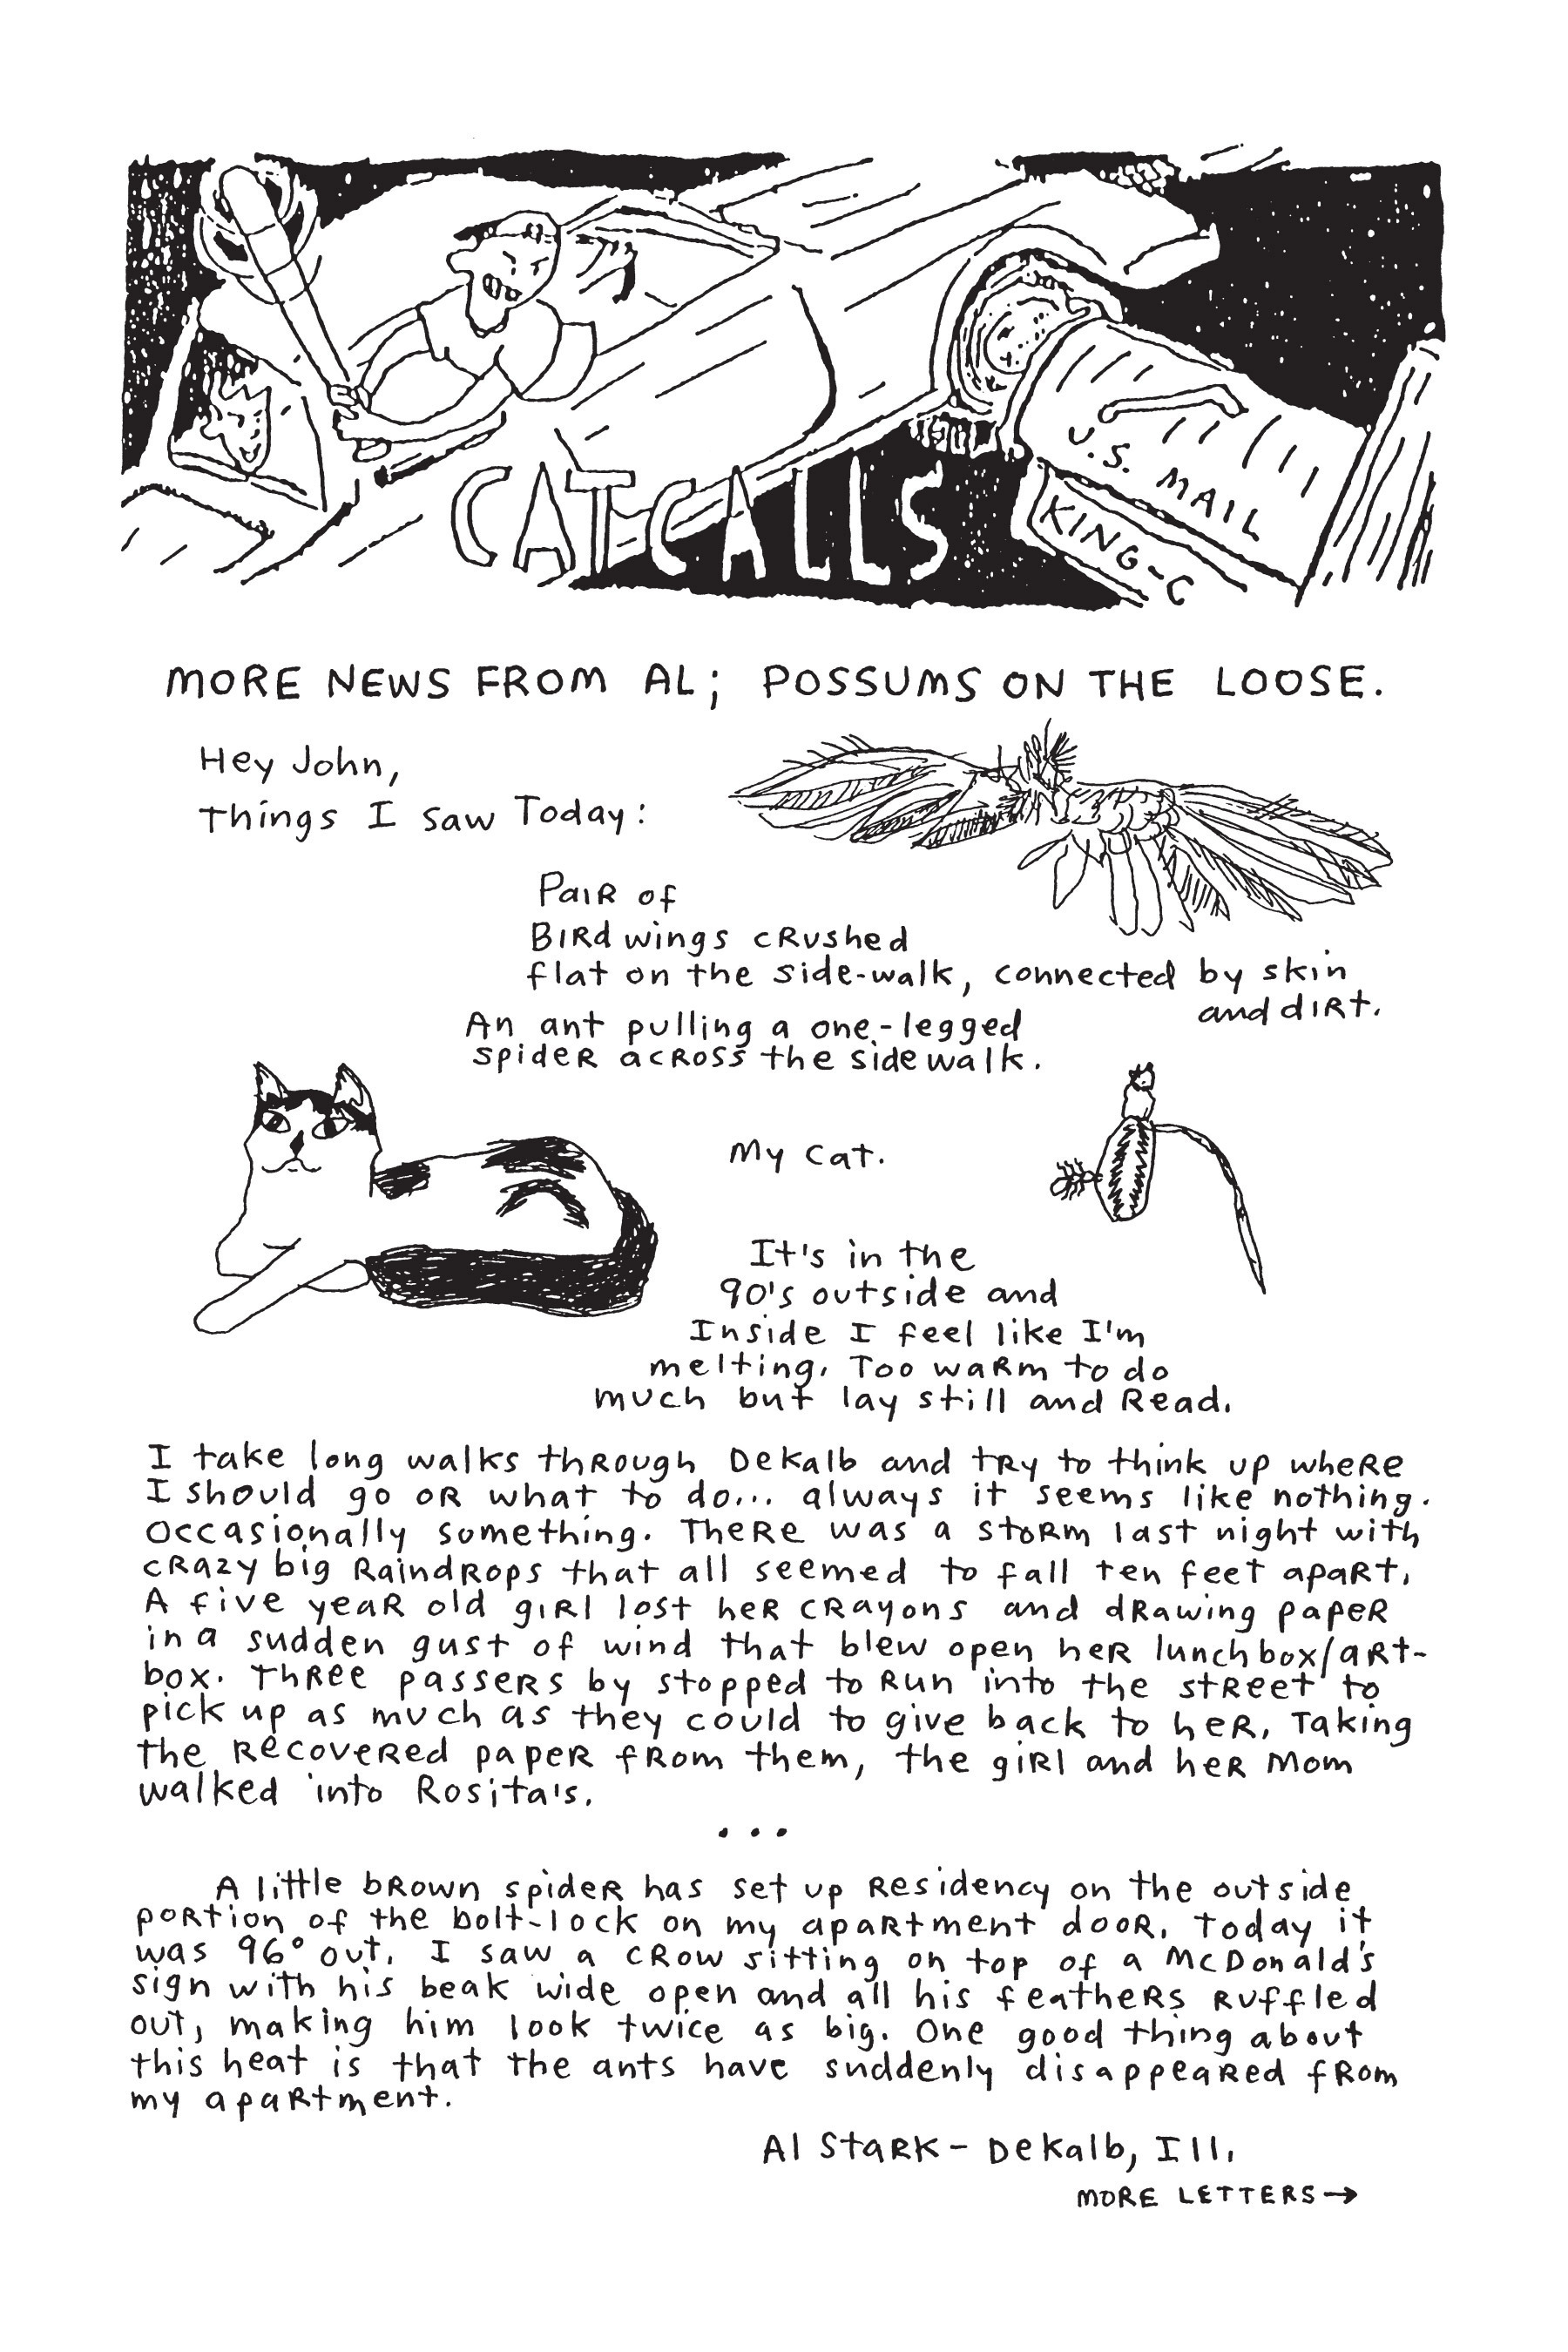 CAT-CALLS
U.S. MAIL
KING-C
MORE NEWS FROM AL; POSSUMS ON THE LOOSE.
Hey John,
Things I saw Today:
Pair of
Bird wings crushed
flat on the side-walk, connected by skin
and dirt.
An ant pulling a one-legged
spider across the sidewalk.
My cat.
It's in the
90's outside and
Inside I feel like I'm
melting. Too warm to do
much but lay still and Read.
I take long walks through DeKalb and try to think up where
I should go or what to do... always it seems like nothing.
Occasionally something. There was a storm last night with
crazy big Raindrops that all seemed to fall ten feet apart.
A five year old girl lost her crayons and drawing paper
in a sudden gust of wind that blew open her lunchbox/art-
box. Three passers by stopped to Run into the street to
pick up as much as they could to give back to her. Taking
the recovered paper from them, the girl and her Mom
walked into Rosita's.
...
A little brown spider has set up Residency on the outside
portion of the bolt-lock on my apartment door. Today it
was 96° out. I saw a crow sitting on top of a McDonald's
sign with his beak wide open and all his feathers ruffled
out, making him look twice as big. One good thing about
this heat is that the ants have suddenly disappeared from
my apartment.
Al Stark - DeKalb, Ill.
MORE LETTERS→